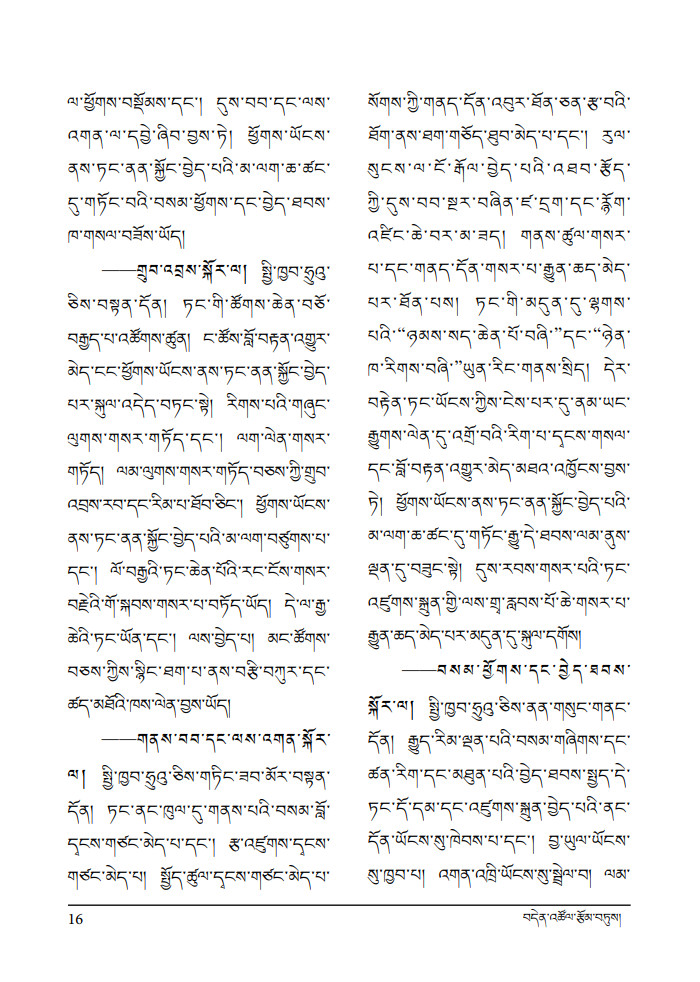 ལ་ཕྱོགས་བསྡོམས་དང་། དུས་བབ་དང་ལས་
འགན་ལ་དབྱེ་ཞིབ་བྱས་ཏེ། ཕྱོགས་ཡོངས་
ནས་ཏང་ནན་སྐྱོང་བྱེད་པའི་མ་ལག་ཆ་ཚང་
དུ་གཏོང་བའི་བསམ་ཕྱོགས་དང་བྱེད་ཐབས་
ཁ་གསལ་བཟོས་ཡོད།
——གྲུབ་འབྲས་སྐོར་ལ། སྤྱི་ཁྱབ་ཧྲུའུ་
ཅིས་བསྟན་དོན། ཏང་གི་ཚོགས་ཆེན་བཅོ་
བརྒྱད་པ་འཚོགས་ཚུན། ང་ཚོས་བློ་བརྟན་འགྱུར་
མེད་ངང་ཕྱོགས་ཡོངས་ནས་ཏང་ནན་སྐྱོང་བྱེད་
པར་སྐུལ་འདེད་བཏང་སྟེ། རིགས་པའི་གཞུང་
ལུགས་གསར་གཏོད་དང་། ལག་ལེན་གསར་
གཏོད། ལམ་ལུགས་གསར་གཏོད་བཅས་ཀྱི་གྲུབ་
འབྲས་རབ་དང་རིམ་པ་ཐོབ་ཅིང་། ཕྱོགས་ཡོངས་
ནས་ཏང་ནན་སྐྱོང་བྱེད་པའི་མ་ལག་བཙུགས་པ་
དང་། ལོ་བརྒྱའི་ཏང་ཆེན་པོའི་རང་ངོས་གསར་
བརྗེའི་གོ་སྐབས་གསར་པ་བཏོད་ཡོད། དེ་ལ་རྒྱ་
ཆེའི་ཏང་ཡོན་དང་། ལས་བྱེད་པ། མང་ཚོགས་
བཅས་ཀྱིས་སྙིང་ཐག་པ་ནས་བརྩི་བཀུར་དང་
ཚད་མཐོའི་ཁས་ལེན་བྱས་ཡོད།
——གནས་བབ་དང་ལས་འགན་སྐོར་
ལ། སྤྱི་ཁྱབ་ཧྲུའུ་ཅིས་གཏིང་ཟབ་མོར་བསྟན་
དོན། ཏང་ནང་ཁུལ་དུ་གནས་པའི་བསམ་བློ་
དྭངས་གཙང་མེད་པ་དང་། རྩ་འཛུགས་དྭངས་
གཙང་མེད་པ། སྤྱོད་ཚུལ་དྭངས་གཙང་མེད་པ་
སོགས་ཀྱི་གནད་དོན་འབུར་ཐོན་ཅན་རྩ་བའི་
ཐོག་ནས་ཐག་གཅོད་ཐུབ་མེད་པ་དང་། རུལ་
སུངས་ལ་ངོ་རྒོལ་བྱེད་པའི་འཐབ་རྩོད་
ཀྱི་དུས་བབ་སྔར་བཞིན་ཛ་དྲག་དང་རྙོག་
འཛིང་ཆེ་བར་མ་ཟད། གནས་ཚུལ་གསར་
པ་དང་གནད་དོན་གསར་པ་རྒྱུན་ཆད་མེད་
པར་ཐོན་པས། ཏང་གི་མདུན་དུ་ལྷགས་
པའི་“ཉམས་སད་ཆེན་པོ་བཞི་”དང་“ཉེན་
ཁ་རིགས་བཞི་”ཡུན་རིང་གནས་སྲིད། དེར་
བརྟེན་ཏང་ཡོངས་ཀྱིས་ངེས་པར་དུ་ནམ་ཡང་
རྒྱུགས་ལེན་དུ་འགྲོ་བའི་རིག་པ་དྭངས་གསལ་
དང་བློ་བརྟན་འགྱུར་མེད་མཐའ་འཁྱོངས་བྱས་
ཏེ། ཕྱོགས་ཡོངས་ནས་ཏང་ནན་སྐྱོང་བྱེད་པའི་
མ་ལག་ཆ་ཚང་དུ་གཏོང་རྒྱུ་དེ་ཐབས་ལམ་ནུས་
ལྡན་དུ་བཟུང་སྟེ། དུས་རབས་གསར་པའི་ཏང་
འཛུགས་སྐྲུན་གྱི་ལས་གྲྭ་རླབས་པོ་ཆེ་གསར་པ་
རྒྱུན་ཆད་མེད་པར་མདུན་དུ་སྐུལ་དགོས།
——བསམ་ཕྱོགས་དང་བྱེད་ཐབས་
སྐོར་ལ། སྤྱི་ཁྱབ་ཧྲུའུ་ཅིས་ནན་གསུང་གནང་
དོན། རྒྱུད་རིམ་ལྡན་པའི་བསམ་གཞིགས་དང་
ཚན་རིག་དང་མཐུན་པའི་བྱེད་ཐབས་སྤྱད་དེ་
ཏང་དོ་དམ་དང་འཛུགས་སྐྲུན་བྱེད་པའི་ནང་
དོན་ཡོངས་སུ་ཁེབས་པ་དང་། བྱ་ཡུལ་ཡོངས་
སུ་ཁྱབ་པ། འགན་འཁྲི་ཡོངས་སུ་སྦྲེལ་བ། ལམ་
16
བདེན་འཚོལ་རྩོམ་བཏུས།